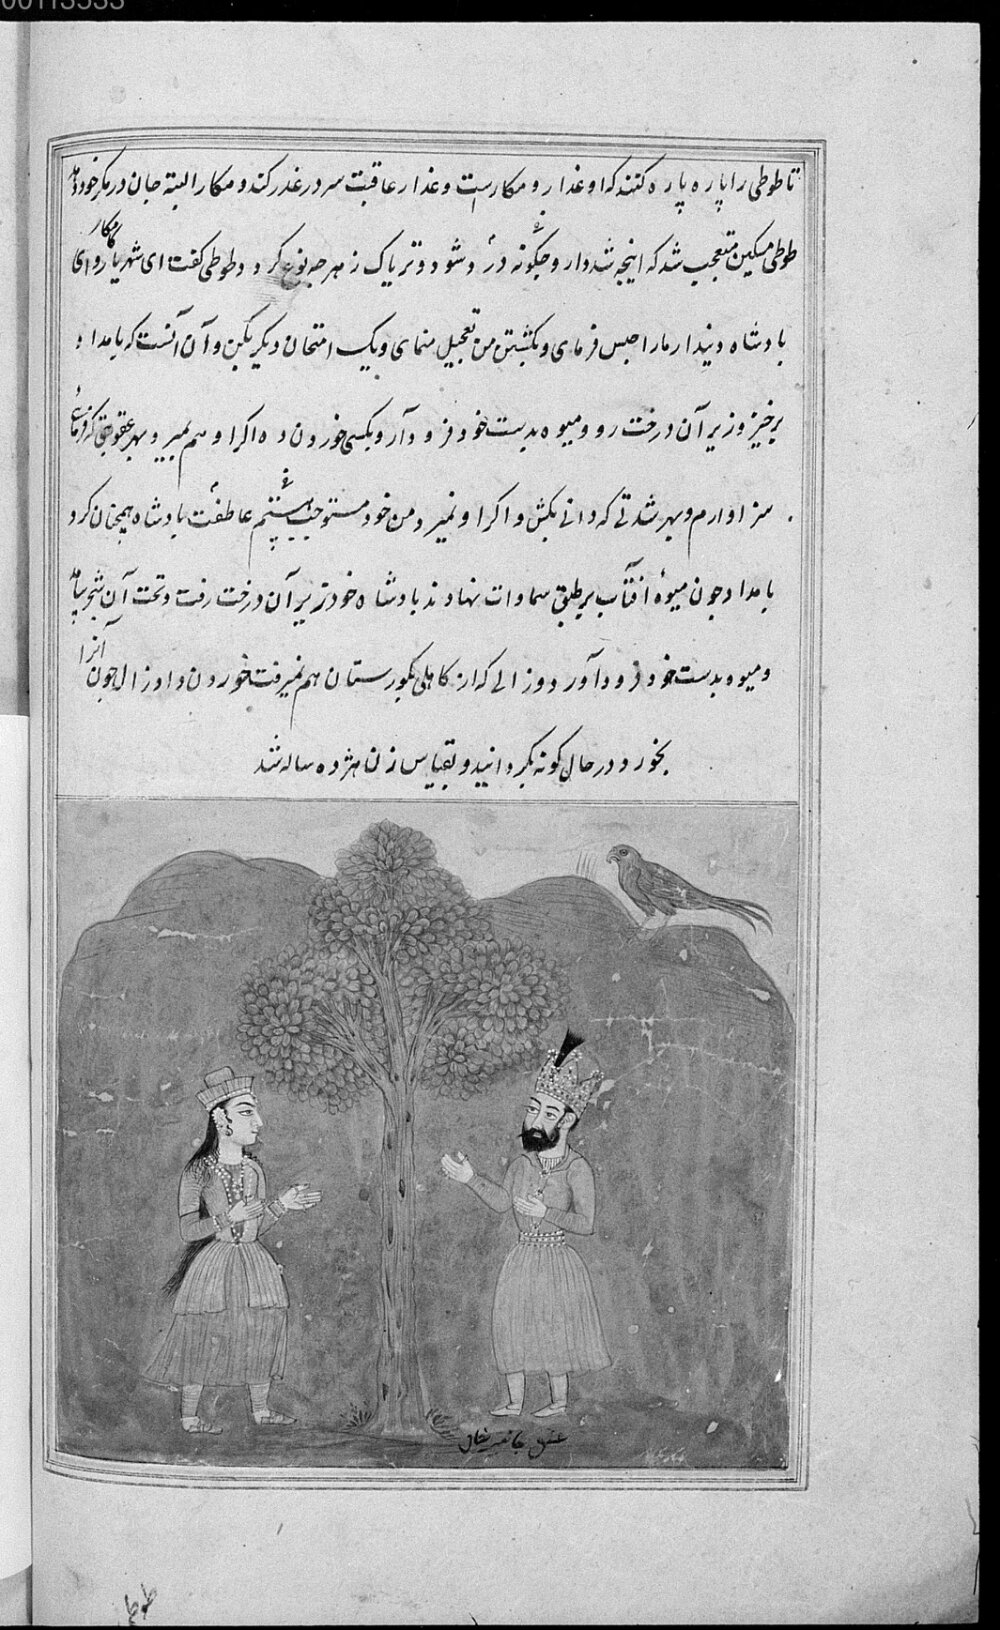 00113533
تا طوطی را پاره پاره کنند که او غدار و مکار است و غدار عاقبت سر در غدر کند و مکار البته جان در مکر خود دهد
طوطی مسکین متعجب شد که اینچه شد دارو چگونه درد شود و تریاک زهر چه نوع گردد طوطی گفت ای شهریار کامکار و ای
بادشاه دیندار مارا حبس فرمای و بکشتن من تعجیل منمای و یک امتحان دیگر بکن و آن آنست که بامداد
برخیز و زیر آن درخت رو و میوه بدست خود فرود آر و بکسی خوردن ده اگر او هم بمیرد بهر عقوبتی که فرمائی
سزاوارم و بهر شدتی که دانی بکش و اگر او نمیرد من خود مستوجب عاطفت بادشاه همچنان کرد
بامداد چون میوهٔ آفتاب بر طبق سماوات نهادند بادشاه خود زیر آن درخت رفت و تحت آن شجر بیامد
و میوه بدست خود فرود آورد و زالی که از کاهلی بگورستان هم نمیرفت خوردن داد زال چون آنرا
بخورد در حال گونه بگردانید و بقیاس زن هژده ساله شد
طوطی